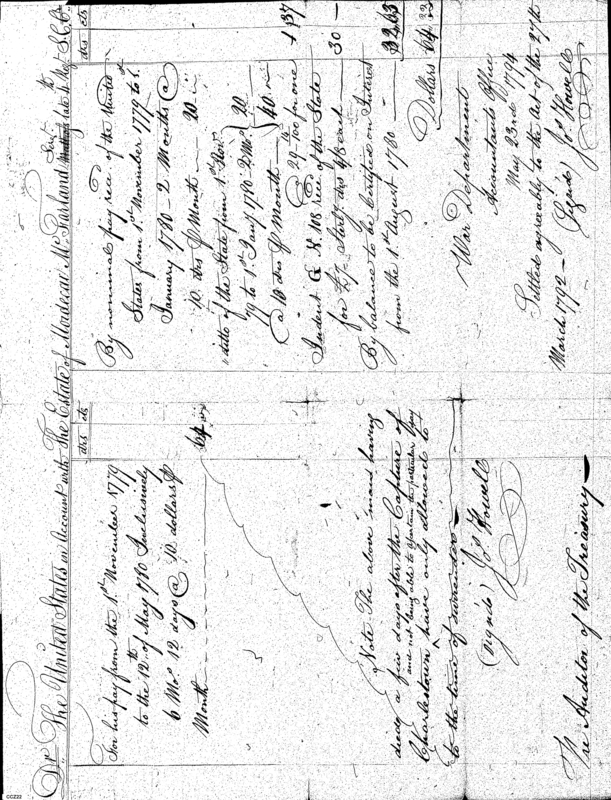 Dr. The United States in Account with The Estate of Mordecai McFarland Serjt. late 1st Regt. S.C. Cr.
drs cts
For his pay from the 1st November 1779
to the 12th of May 1780 Inclusively
6 Mos 12 days @ 10 dollars P
Month 64
Note The above man having
died a few days after the Capture of
and not being able to ascertain the particular day
Charlestown have only allowed to
to the time of surrender
(signed) Jos Howell
The Auditor of the Treasury
drs cts
By nominal pay recd of the United
States from 1st November 1779 to 1st
January 1780 - 2 Months @
10 drs P Month 20
ditto of the State from 1st Novr
79 to 1st Jany 1780 2 Mos 20
@ 10 drs P Month 40
@ 29 100 for one 1,37
Indent No. 108 recd of the State
for £7 Sterlg drs 4/8 each 30
By balance to be Certified on Interest
from the 1st August 1780 32,63
Dollars 64
War Department
Accountants Office
May 23rd 1794
Settled agreeably to the Act of the 27th
March 1792 - (Signed) Jos Howell
CCZ22